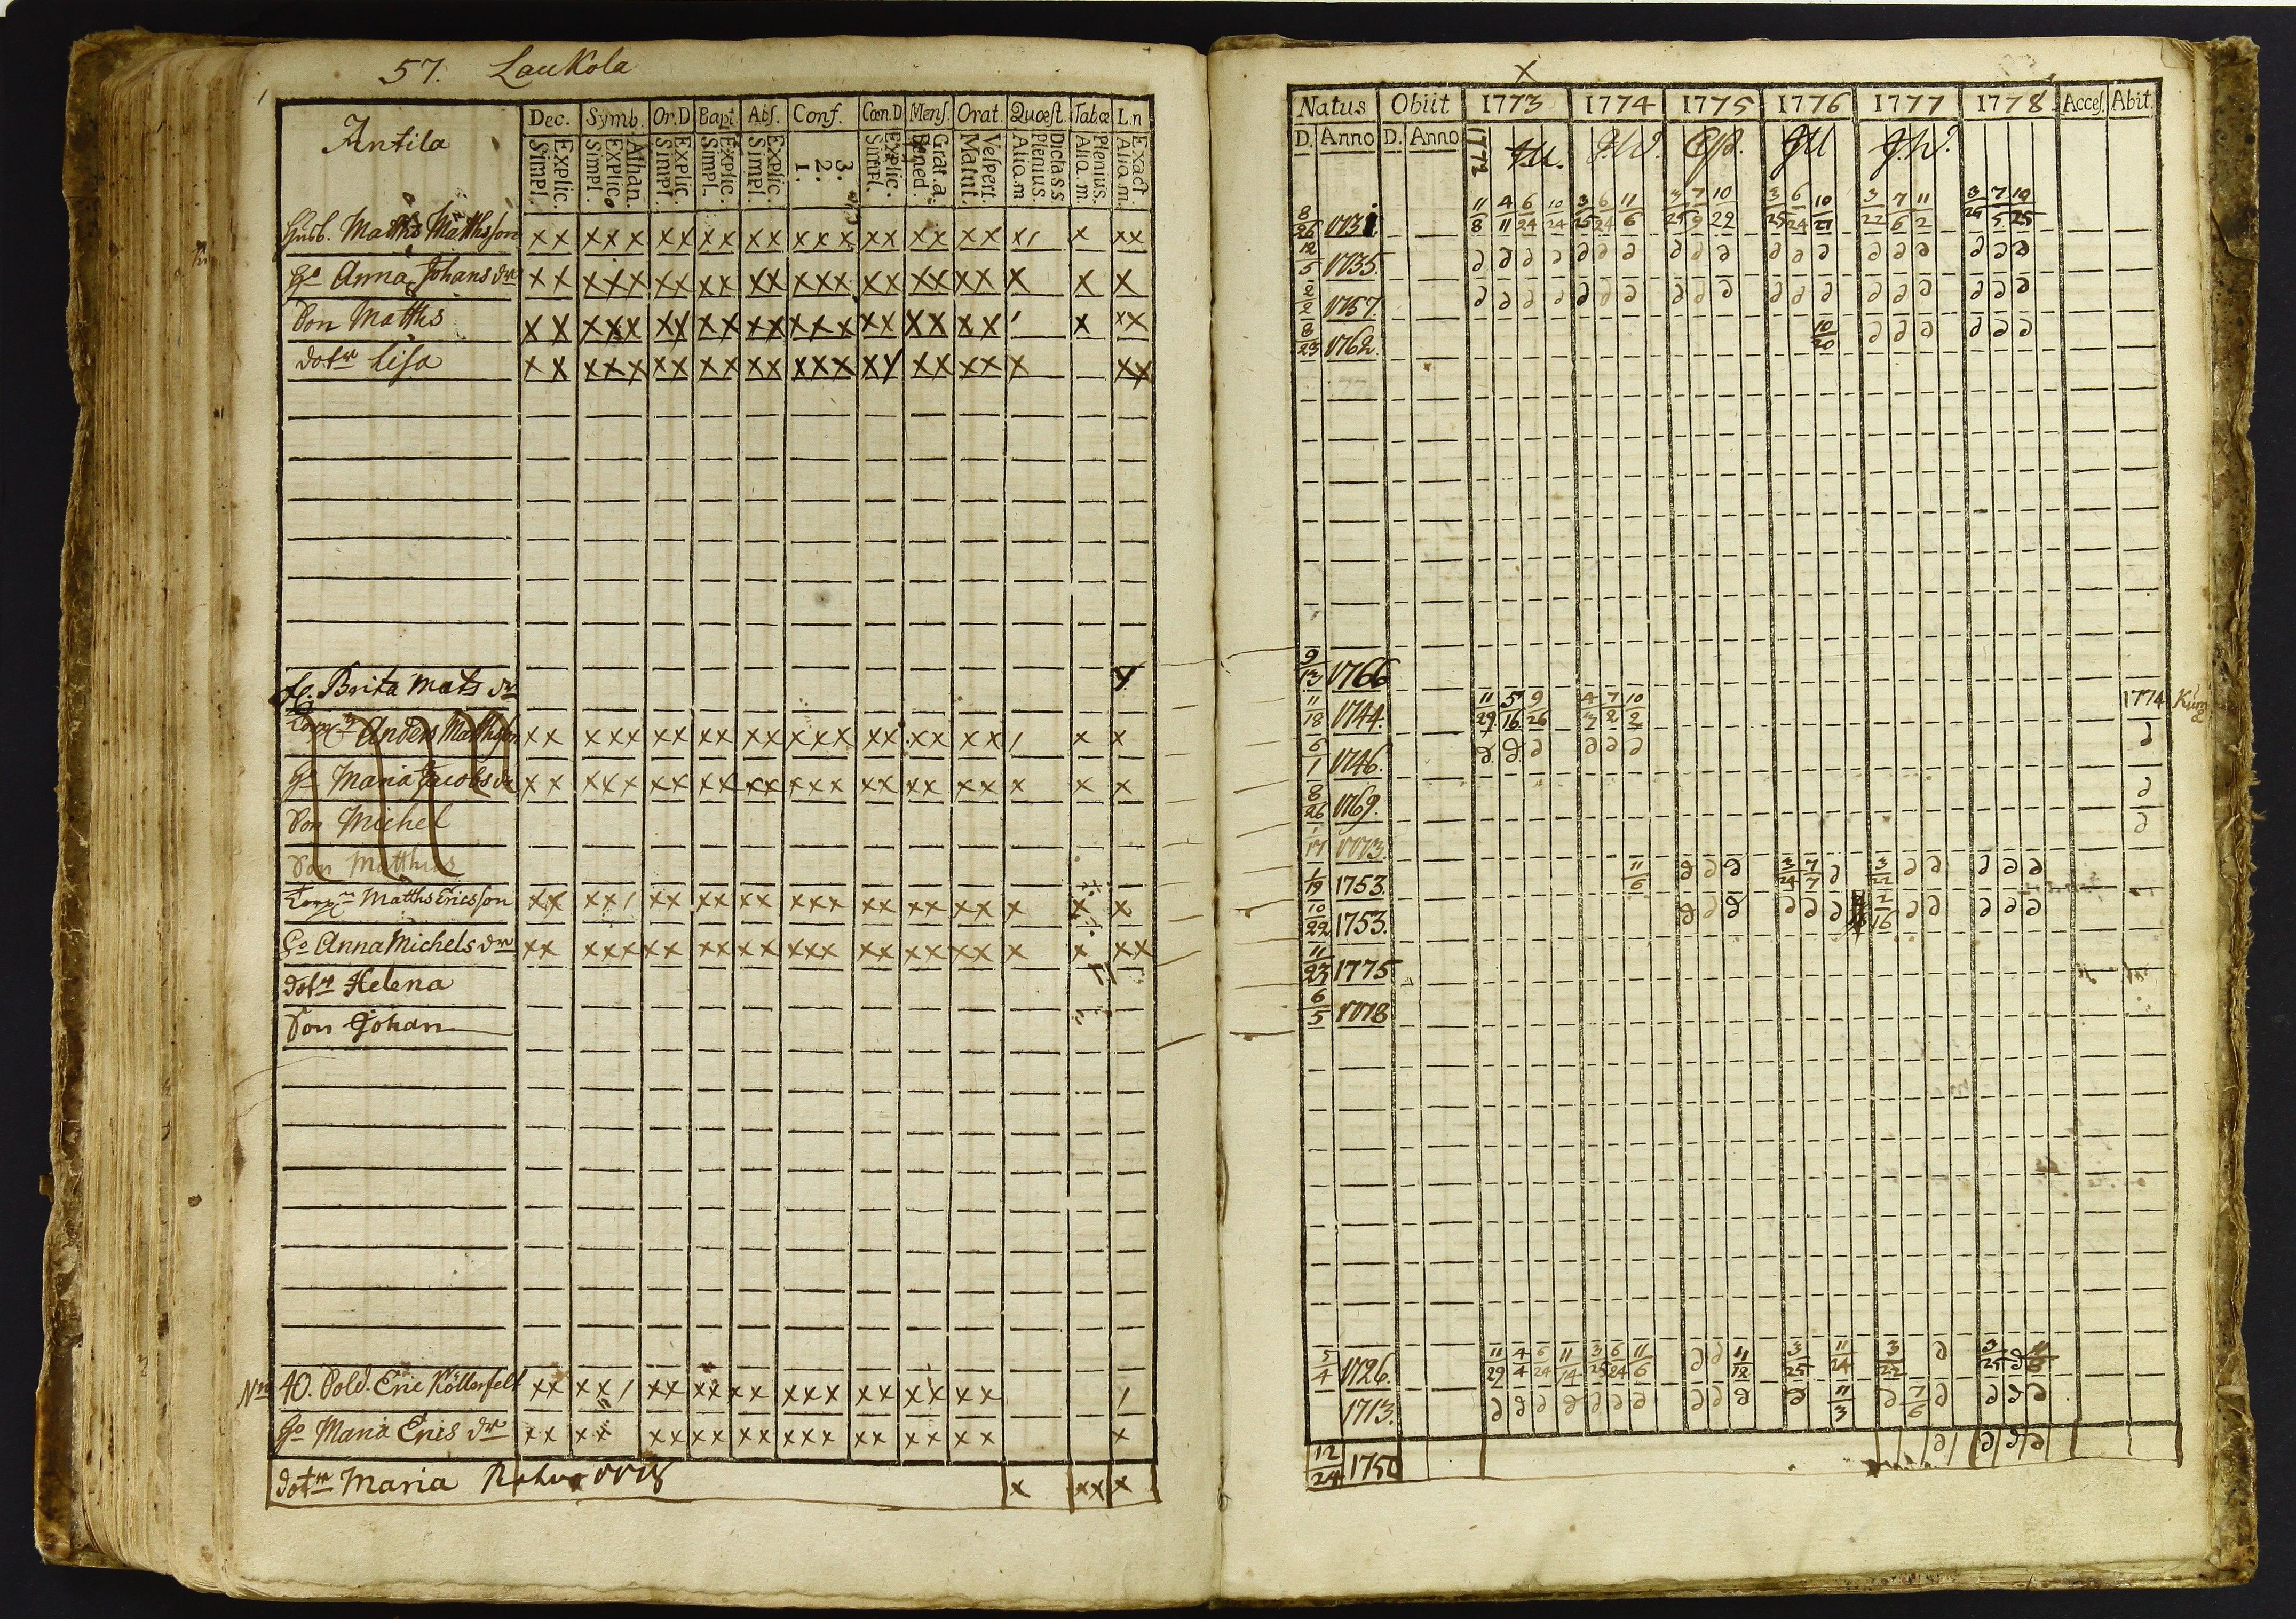 57. Laukola
Antila
Dec. Symb. Or.D Bapt. Abſ. Conf. Cœn.D Menſ. Orat. Quœſt. Tabœ L.n
Explic. Simpl. Athan. Explic. Simpl. Explic. Simpl. Explic. Simpl. Explic. Simpl. 3. 2. 1. Explic. Simpl. Grat. a. Bened. Veſpert. Matut. Dicta.s.s Plenius. Aliq.m Plenius. Aliq.m. Exact. Aliq.m.
Husb. Matths Mathsson xx xxx xx xx xx xxx xx xx xx x/ x xx
Ho Anna Johansdr xx xxx xx xx xx xxx xx xx xx x x x
Son Matths xx xxx xx xx xx xxx xx xx xx / x xx
dotr Lisa xx xxx xx xx xx xxx xx xx xx x xx
Brita Mats dr
Anders Mathsson xx xxx xx xx xx xxx xx xx xx / x x
Ho Maria Jacobsdr xx xxx xx xx xx xxx xx xx xx x x x
Son Michel
Son Matthias
Matths Ericsson xx xx/ xx xx xx xxx xx xx xx x x x
Ho Anna Michels dr xx xxx xx xx xx xxx xx xx xx x x xx
dotr Helena
Son Johan
Nro 40. Sold. Eric Köllerfelt xx xx/ xx xx xx xxx xx xx xx /
Ho Maria Erics dr xx xx xx xx xx xxx xx xx xx x
dotr Maria x xx x
Natus Obiit 1773 1774 1775 1776 1777 1778 Acceſ. Abit.
D. Anno D. Anno 1772 J.W. J.W.
8/26 1731 11/8 4/11 6/24 10/24 3/25 6/24 11/6 3/25 7/9 10/22 3/25 6/24 10/27 3/22 7/6 11/2 3/29 7/5 10/25
12/5 1735. ∂ ∂ ∂ ∂ ∂ ∂ ∂ ∂ ∂ ∂ ∂ ∂ ∂ ∂ ∂ ∂ ∂ ∂ ∂
2/2 1757. ∂ ∂ ∂ ∂ ∂ ∂ ∂ ∂ ∂ ∂ ∂ ∂ ∂ ∂ ∂ ∂ ∂ ∂ ∂
8/23 1762. 10/20 ∂ ∂ ∂ ∂ ∂ ∂
9/13 1766
11/18 1744. 11/29 5/16 9/26 4/3 7/2 10/2 1774
6/1 1746. ∂ ∂ ∂ ∂ ∂ ∂ ∂
8/26 1769. ∂
1/17 1773. ∂
1/19 1753. 11/6 ∂ ∂ ∂ 3/24 7/7 ∂ 3/22 ∂ ∂ ∂ ∂ ∂
10/22 1753. ∂ ∂ ∂ ∂ ∂ ∂ 2/16 ∂ ∂ ∂ ∂ ∂
11/23 1775
6/5 1778
5/4 1726. 11/29 4/4 6/24 11/14 3/25 6/24 11/6 ∂ ∂ 11/12 3/25 11/24 3/22 ∂ 3/25 ∂ 11/8
1713. ∂ ∂ ∂ ∂ ∂ ∂ ∂ ∂ ∂ ∂ ∂ 11/3 ∂ 7/6 ∂ ∂ ∂ ∂
12/24 1750 ∂ ∂ ∂ ∂